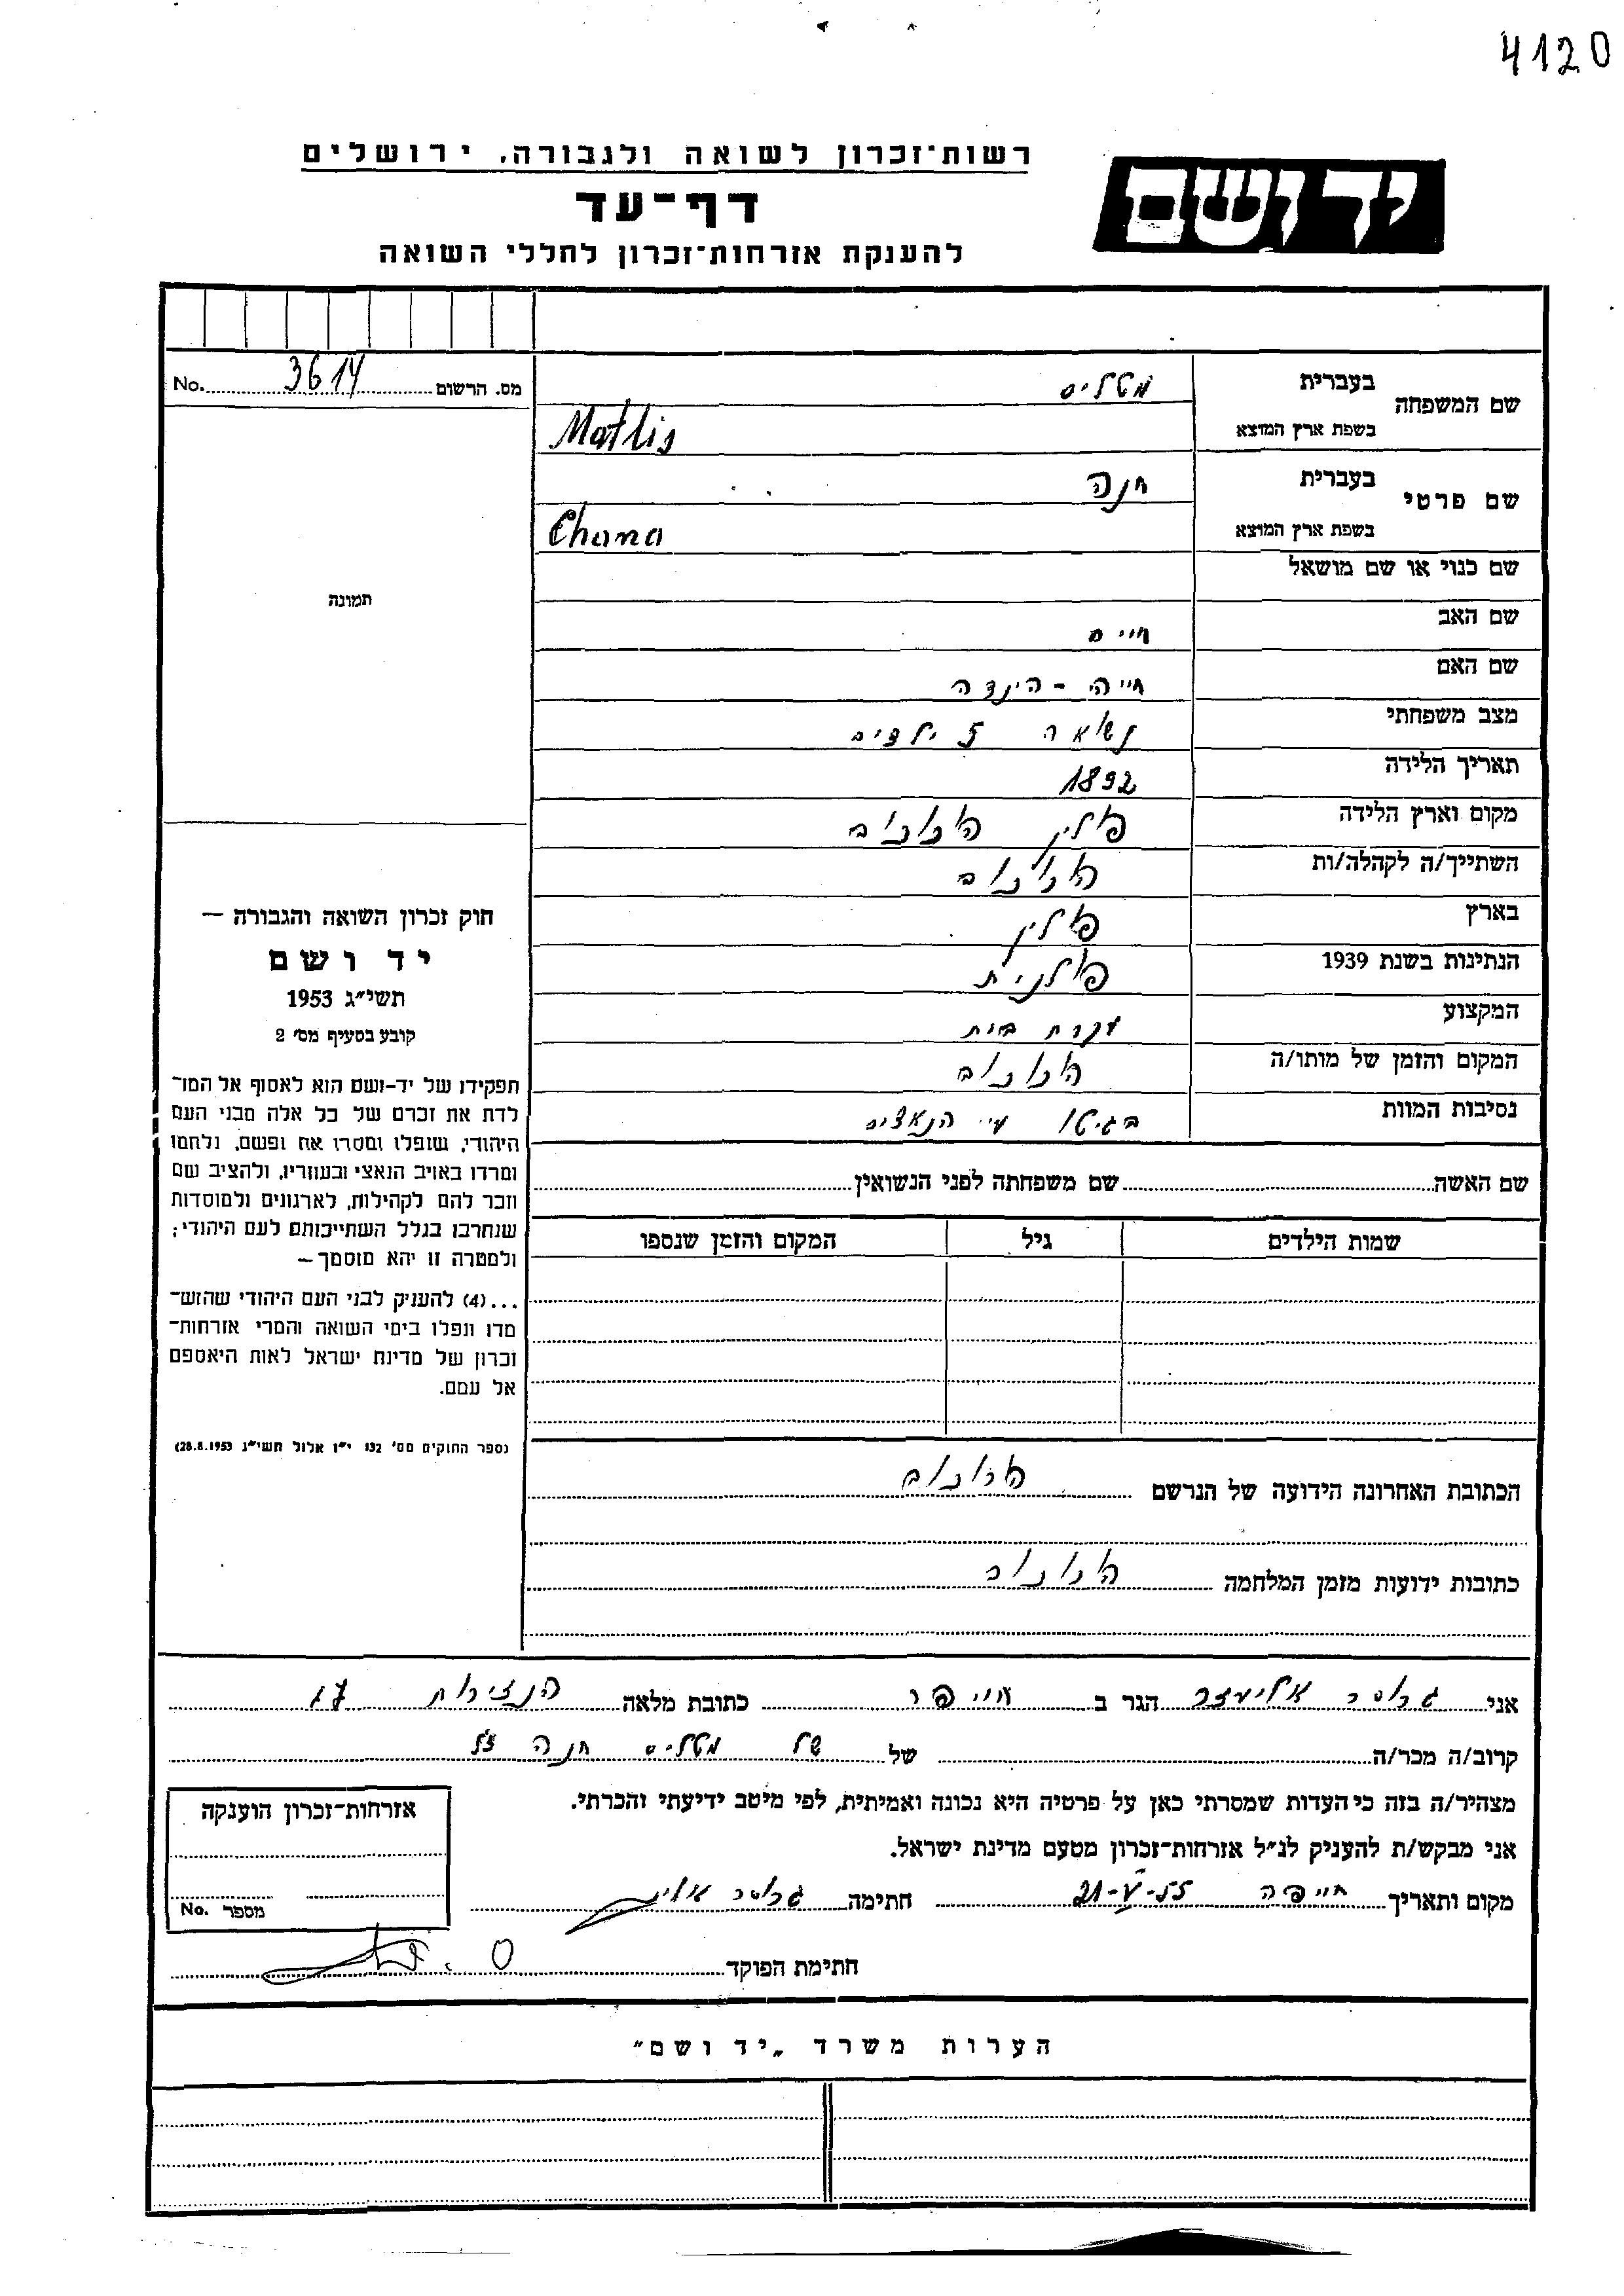 4120
רשות־זכרון לשואה ולגבורה, ירושלים
יד ושם
דף־עד
להענקת אזרחות־זכרון לחללי השואה
מס. הרשום 3614 No.
שם המשפחה
בעברית מטליס
בשפת ארץ המוצא Matlis
שם פרטי
בעברית חנה
בשפת ארץ המוצא Chana
שם כנוי או שם מושאל
שם האב חיים
שם האם חיה - הינדה
מצב משפחתי נשואה 5 ילדים
תאריך הלידה 1892
מקום וארץ הלידה פולין
השתייך/ה לקהלה/ות
בארץ פולין
הנתינות בשנת 1939 פולנית
המקצוע עקרת בית
המקום והזמן של מותו/ה
נסיבות המוות בגיטו ע"י הנאצים
תמונה
חוק זכרון השואה והגבורה —
יד ושם
תשי״ג 1953
קובע בסעיף מס׳ 2
תפקידו של יד-ושם הוא לאסוף אל המו־
לדת את זכרם של כל אלה מבני העם
היהודי, שנפלו ומסרו את נפשם, נלחמו
ומרדו באויב הנאצי ובעוזריו, ולהציב שם
וזכר להם לקהילות, לארגונים ולמוסדות
שנחרבו בגלל השתייכותם לעם היהודי;
ולמטרה זו יהא מוסמך —
...(4) להעניק לבני העם היהודי שהוש־
מדו ונפלו בימי השואה והמרי אזרחות־
זכרון של מדינת ישראל לאות היאספם
אל עמם.
(ספר החוקים מס׳ 132 י״ז אלול תשי״ג 28.8.1953)
שם האשה שם משפחתה לפני הנשואין
שמות הילדים גיל המקום והזמן שנספו
הכתובת האחרונה הידועה של הנרשם
כתובות ידועות מזמן המלחמה
אני אליעזר הגר ב חייפה כתובת מלאה
קרוב/ה מכר/ה של של מטליס חנה ז"ל
מצהיר/ה בזה כי העדות שמסרתי כאן על פרטיה היא נכונה ואמיתית, לפי מיטב ידיעתי והכרתי.
אני מבקש/ת להעניק לנ״ל אזרחות־זכרון מטעם מדינת ישראל.
מקום ותאריך חייפה 21-V-55 חתימה
חתימת הפוקד
אזרחות־זכרון הוענקה
מספר No.
הערות משרד „יד ושם״